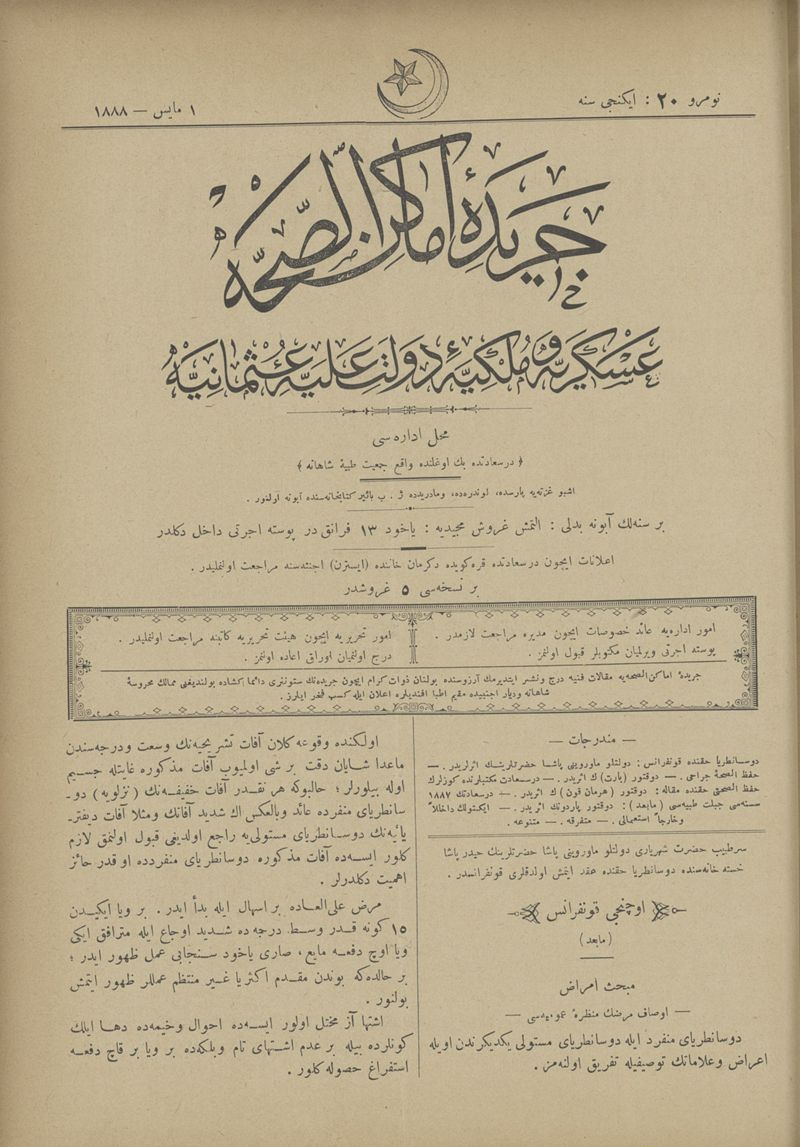 نومرو ٢٠ : ایكنجی سنه
١ مایس — ١٨٨٨
جریدهٔ اماكن الصحه
عسكریه و ملكیهٔ دولت علیهٔ عثمانیه
محل اداره‌سی
﴿ درسعادتده بك اوغلنده واقع جمعیت طبیهٔ شاهانه ﴾
اشبو غزته‌یه پارسده، لوندره‌ده، ومادریدده ژ . ب بائیر كتابخانه‌سنده آبونه اولنور .
بر سنه‌لك آبونه بدلی : التمش غروش مجیدیه : یاخود ١٣ فرانق در پوسته اجرتی داخل دكلدر
اعلانات ایچون درسعادتده قره‌كویده دكرمان خاننده (ایسترن) اجنته‌سنه مراجعت اولنملیدر .
بر نسخه‌سی ٥ غروشدر
امور اداره‌یه عائد خصوصات ایچون مدیره مراجعت لازمدر .
پوسته اجرتی ویرلمیان مكتوبلر قبول اولنمز .
امور تحریریه ایچون هیئت تحریریه كاتبنه مراجعت اولنملیدر .
درج اولنمیان اوراق اعاده اولنمز .
جریدهٔ اماكن‌الصحه‌یه مقالات فنیه درج ونشر ایتدیرمك آرزوسنده بولنان ذوات كرام ایچون جریده‌نك ستونلری دائما كشاده بولندیغنی ممالك محروسهٔ
شاهانه ودیار اجنبیده مقیم اطبا افندیلره اعلان ایله كسب فخر ایلرز .
— مندرجات —
دوسانطریا حقنده قونفرانس : دولتلو ماوروینی پاشا حضرتلرینك اثرلریدر . —
حفظ الصحهٔ جراحی . — دوقتور (یارت) ك اثریدر . — درسعادت مكتبلرنده كوزلرك
حفظ الصحتی حقنده مقاله : دوقتور (هرمان قون) ك اثریدر . — درسعادتك ١٨٨٧
سنه‌سی جبلت طبیه‌سی (مابعد) : دوقتور پاردونك اثریدر . — ایكتولك داخلاً
وخارجاً استعمالی . — متفرقه . — متنوعه .
سرطبیب حضرت شهریاری دولتلو ماوروینی پاشا حضرتلرینك حیدر پاشا
خسته خانه‌سنده دوسانطریا حقنده عقد ایتمش اولدقلری قونفرانسدر .
اوچنجی قونفرانس
(مابعد)
مبحث امراض
— اوصاف مرضك منظرهٔ عمومیه‌سی —
دوسانطریای منفرد ایله دوسانطریای مستولی یكدیكرندن اویله
اعراض وعلاماتك توصیفیله تفریق اولنه‌مز .
اولكنده وقوعه كلان آفات تشریحیه‌نك وسعت ودرجه‌سندن
ماعدا شایان دقت بر شی اولمیوب آفات مذكوره غایتله جسیم
اوله بیلورلر ؛ حالبوكه هر نقدر آفات خفیفه‌نك (نزلویه) دو-
سانطریای منفرده عائد وبالعكس اك شدید آفاتك ومثلا آفات دیفتر-
یائیه‌نك دوسانطریای مستولی‌یه راجع اولدیغی قبول اولنمق لازم
كلور ایسه‌ده آفات مذكوره دوسانطریای منفردده او قدر حائز
اهمیت دكلدرلر .
مرض علی‌العاده بر اسهال ایله بدأ ایدر . بر ویا ایكیدن
١٥ كونه قدر وسط درجه ده شدید اوجاع ایله مترافق ایكی
ویا اوچ دفعه مایع ، صاری یاخود سنجابی عمل ظهور ایدر ؛
بر حالده‌كه بوندن مقدم اكثریا غیر منتظم عمللر ظهور ایتمش
بولنور .
اشتها آز مختل اولور ایسه‌ده احوال وخیمه‌ده دها ایلك
كونلرده بیله بر عدم اشتهای تام وبلكه‌ده بر ویا بر قاچ دفعه
استفراغ حصوله كلور .